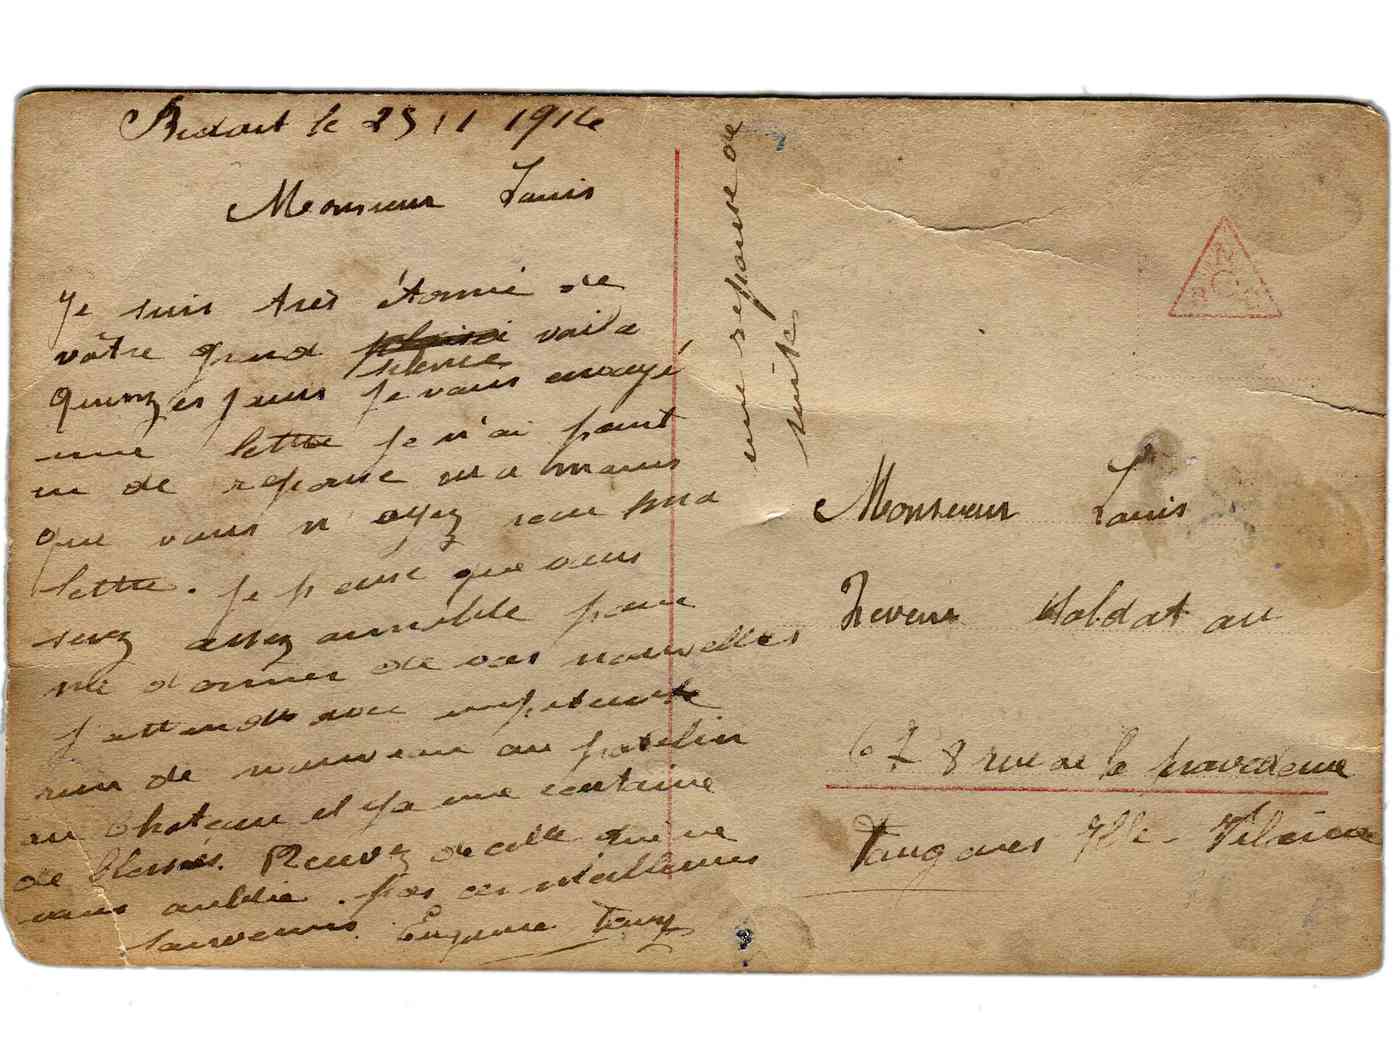 le 25 11 1914
Monsieur Louis
Je suis très étonné de
vôtre grand voila
silence
quinzes jours je vous envoyé
une lettre je n'ai point
u de reponse ma
que vous n'ayez ma
lettre. Je pense que vous
serez assez aimable pour
me donner de vos nouvelles
j'attends avec
rien de nouveau au patelin
au chateau il y a une centaine
de blessés. Recevez de celle qui ne
vous oublie pas ces meilleures
souvenirs. Eugenie
une reponse de
suite
Monsieur Louis
Soldat au
8 rue de la
Ille-Vilaine